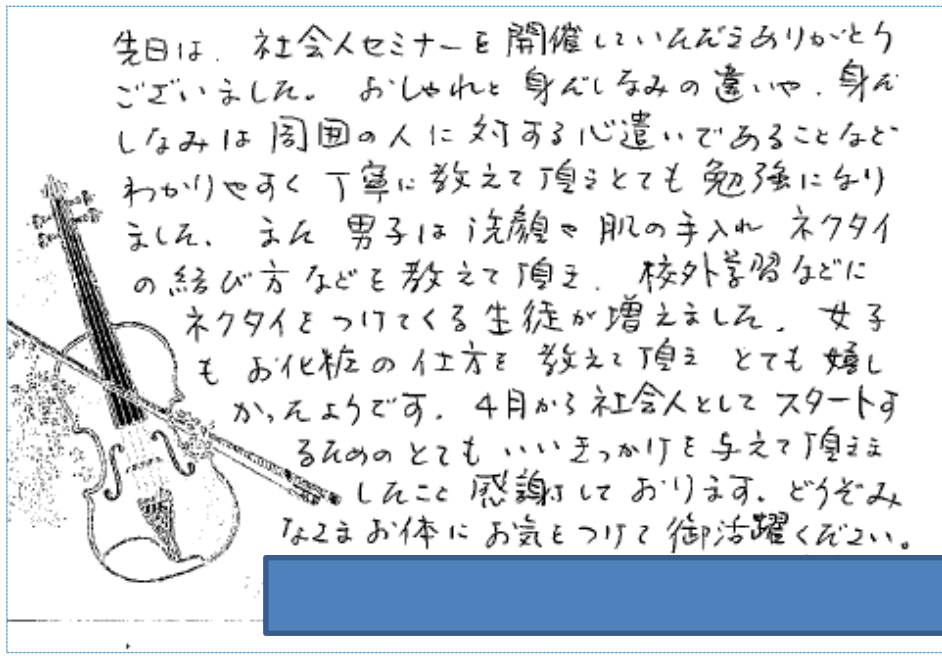 先日は、社会人セミナーを開催していただきありがとう
ございました。おしゃれと身だしなみの違いや、身だ
しなみは周囲の人に対する心遣いであることなど
わかりやすく丁寧に教えて頂きとても勉強になり
ました、また男子は洗顔や肌の手入れネクタイ
の結び方などを教えて頂き、校外学習などに
ネクタイをつけてくる生徒が増えました、女子
もお化粧の仕方を教えて頂きとても嬉し
かったようです、4月から社会人としてスタートす
るためのとてもいいきっかけを与えて頂きま
したこと感謝しております、どうぞみ
なさまお体にお気をつけて御活躍ください。